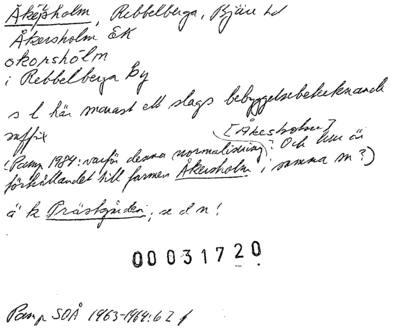 Åkersholm, Rebbelberga, Bjäre hd
Åkersholm EK
okorshölm
i Rebbelberga by
s l här manast ett slags bebyggelsebetecknande
suffix
[Åkesholm]
(Pamp 1984: varför denna normalisering? Och hur är
förhållandet till formen Åkersholm i samma sn?)
ä k Prästgården; se d n!
00031720
Pamp SOÅ 1963-1964:62 f